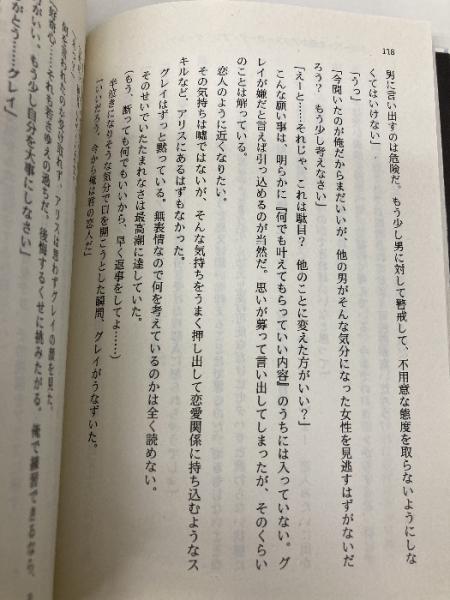 118
男に言い出すのは危険だ。もう少し男に対して警戒して、不用意な態度を取らないようにしな
くてはいけない」
「うっ」
「今聞いたのが俺だからまだいいが、他の男がそんな気分になった女性を見逃すはずがないだ
ろう？　もう少し考えなさい」
「えーと……それじゃ、これは駄目？　他のことに変えた方がいい？」
こんな願い事は、明らかに『何でも叶えてもらっていい内容』のうちには入っていない。グ
レイが嫌だと言えば引っ込めるのが当然だ。思いが募って言い出してしまったが、そのくらい
のことは解っている。
恋人のように近くなりたい。
その気持ちは嘘ではないが、そんな気持ちをうまく押し出して恋愛関係に持ち込むようなス
キルなど、アリスにあるはずもなかった。
グレイはずっと黙っている。無表情なので何を考えているのかは全く読めない。
そのせいでいたたまれなさは最高潮に達していた。
（もう、断っても何でもいいから、早く返事をしてよ……）
半泣きになりそうな気分で口を開こうとした瞬間、グレイがうなずいた。
「いいだろう、今から俺は君の恋人だ」
何を言われたのな受け取れず、アリスは思わずグレイの顔を見た。
「好奇心……それも若さゆえの過ちだ。後悔するくせに挑みたがる。俺で練習できるなら、
がいい。もう少し自分を大事にしなさい」
がとう……グレイ」